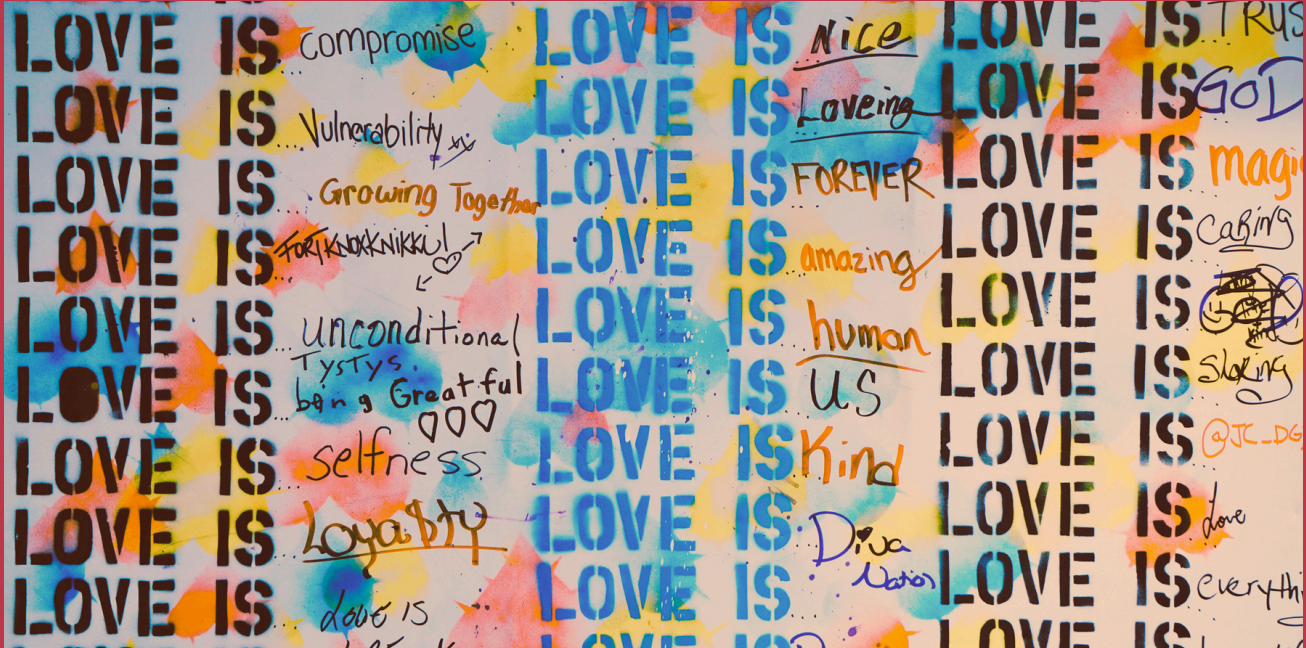 LOVE IS... compromise
LOVE IS... Vulnerability xx
LOVE IS... Growing Together
LOVE IS... FORTKNOXKNIKKI!
LOVE IS... unconditional
TYSTYS.
LOVE IS... being Greatful
LOVE IS... selfness
LOVE IS... Loya$ty
LOVE IS... Love IS
LOVE IS... Nice
LOVE IS... Loveing
LOVE IS... FOREVER
LOVE IS... amazing
LOVE IS... human
LOVE IS... US
LOVE IS... Kind
LOVE IS... Diva
Nation
LOVE IS...
LOVE IS
LOVE IS... TRUS
LOVE IS... GOD
LOVE IS... magic
LOVE IS... CaRing
LOVE IS...
LOVE IS... Sharing
LOVE IS... @JC_DG
LOVE IS... Love
LOVE IS... everythi
LOVE IS